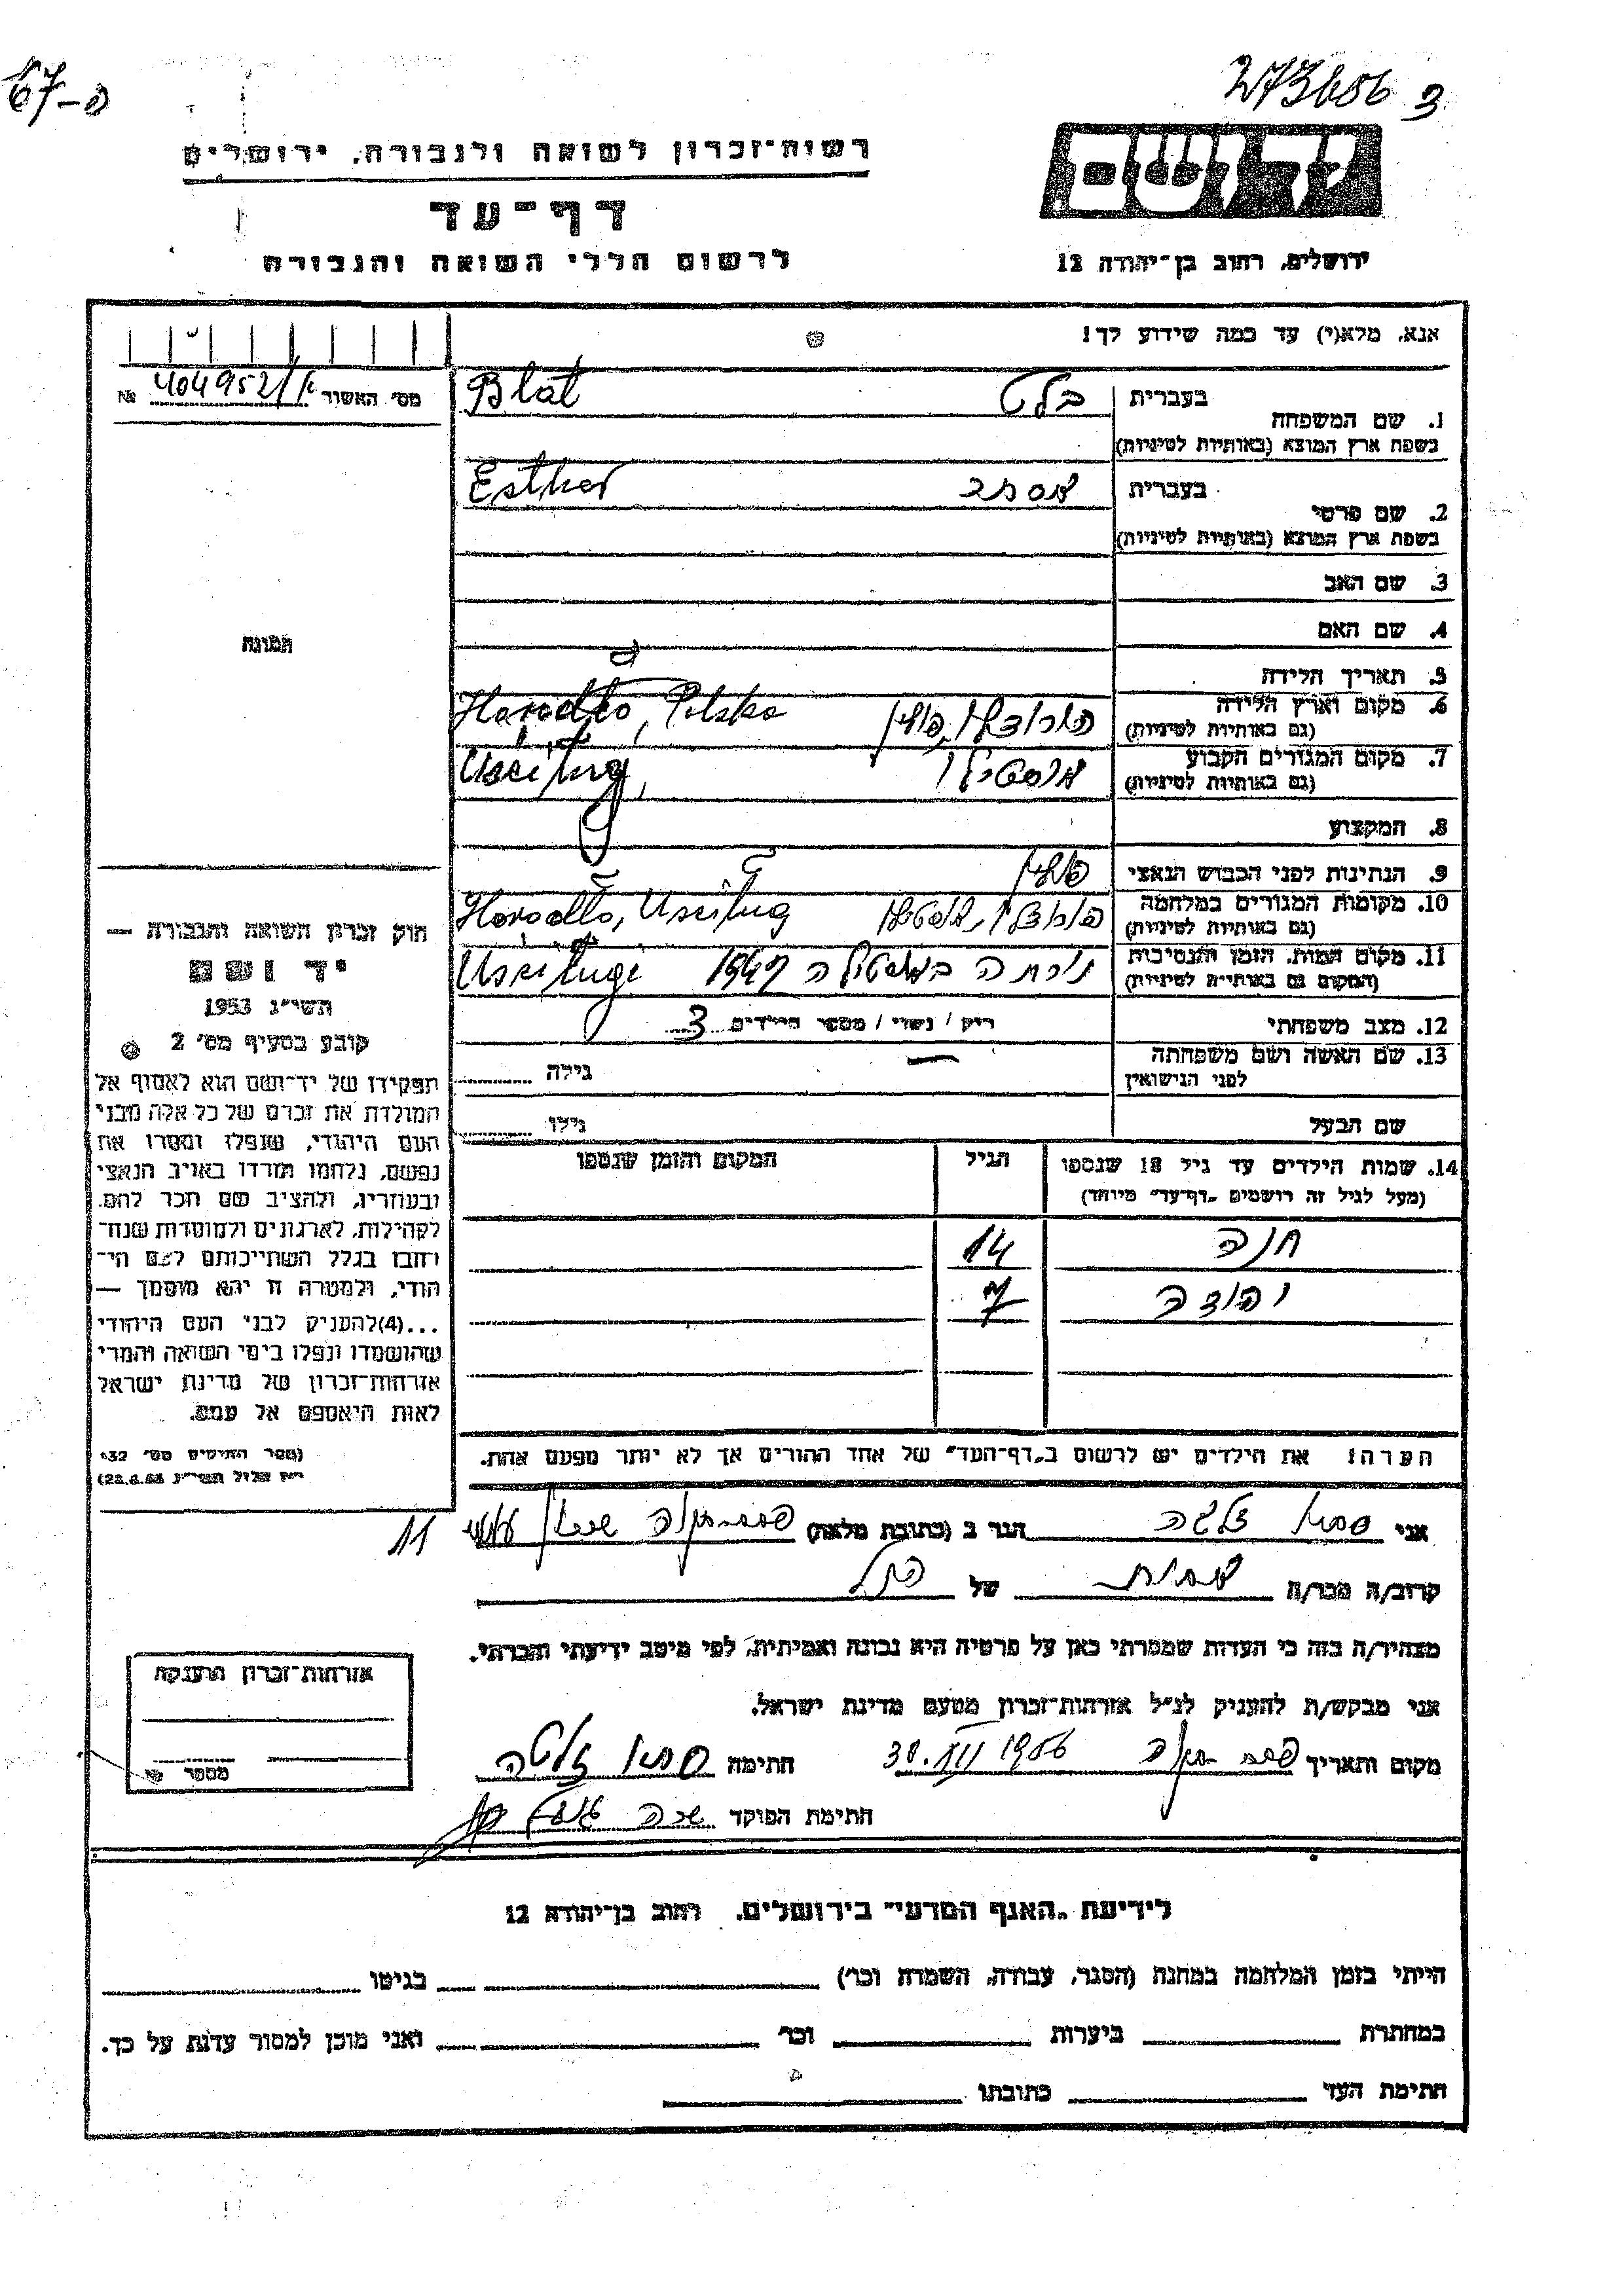 67-ס
273606 3
יד ושם
רשות-זכרון לשואה ולגבורה, ירושלים
דף-עד
לרשום חללי השואה והגבורה
ירושלים, רחוב בן-יהודה 12
אנא, מלא(י) עד כמה שידוע לך!
מס' האשור 404952 №
1. שם המשפחה
בעברית בלט Blat
בשפת ארץ המוצא (באותיות לטיניות)
2. שם פרטי
בעברית אסתר Esther
בשפת ארץ המוצא (באותיות לטיניות)
3. שם האב
4. שם האם
5. תאריך הלידה
6. מקום וארץ הלידה הורודלו, פולין Horodło, Polska
(גם באותיות לטיניות)
7. מקום המגורים הקבוע אוסטילו Uściług,
(גם באותיות לטיניות)
8. המקצוע
9. הנתינות לפני הכבוש הנאצי פולין
10. מקומות המגורים במלחמה הורודלו, אוסטילו Horodło, Uściług
(גם באותיות לטיניות)
11. מקום המות, הזמן והנסיבות באוסטילה Uściługi
(המקום גם באותיות לטיניות)
12. מצב משפחתי רוק / נשוי / מספר הילדים 3
13. שם האשה ושם משפחתה — גילה
לפני הנישואין
שם הבעל גילו
14. שמות הילדים עד גיל 18 שנספו הגיל המקום והזמן שנספו
(מעל לגיל זה רושמים "דף-עד" מיוחד)
חנה 14
יהודה 7
הערה! את הילדים יש לרשום ב"דף-העד" של אחד ההורים אך לא יותר מפעם אחת.
תמונה
חוק זכרון השואה והגבורה —
יד ושם
תשי"ג 1953
קובע בסעיף מס' 2
תפקידו של יד-ושם הוא לאסוף אל
המולדת את זכרם של כל אלה מבני
העם היהודי, שנפלו ומסרו את
נפשם, נלחמו ומרדו באויב הנאצי
ובעוזריו, ולהציב שם וזכר להם,
לקהילות, לארגונים ולמוסדות שנח-
רחבו בגלל השתייכותם לעם הי-
הודי, ולמטרה זו יהא מוסמך —
...(4)להעניק לבני העם היהודי
שהושמדו ונפלו בימי השואה והמרי
אזרחות-זכרון של מדינת ישראל
לאות היאספם אל עמם.
(ספר החוקים מס' 132
י"ז אלול תשי"ג 28.8.53)
אני זלטה הגר ב (כתובת מלאה) 11
קרוב/ה מכר/ה של
מצהיר/ה בזה כי העדות שמסרתי כאן על פרטיה היא נכונה ואמיתית, לפי מיטב ידיעתי והכרתי.
אני מבקש/ת להעניק לנ"ל אזרחות-זכרון מטעם מדינת ישראל.
מקום ותאריך 30.XII 1956 חתימה זלטה
חתימת הפוקד שרה
אזרחות-זכרון הוענקה
מספר
לידיעת "האגף המדעי" בירושלים, רחוב בן-יהודה 12
הייתי בזמן המלחמה במחנה (הסגר, עבודה, השמדה וכו') בגיטו
במחתרת ביערות וכו' ואני מוכן למסור עדות על כך.
חתימת העד כתובתו